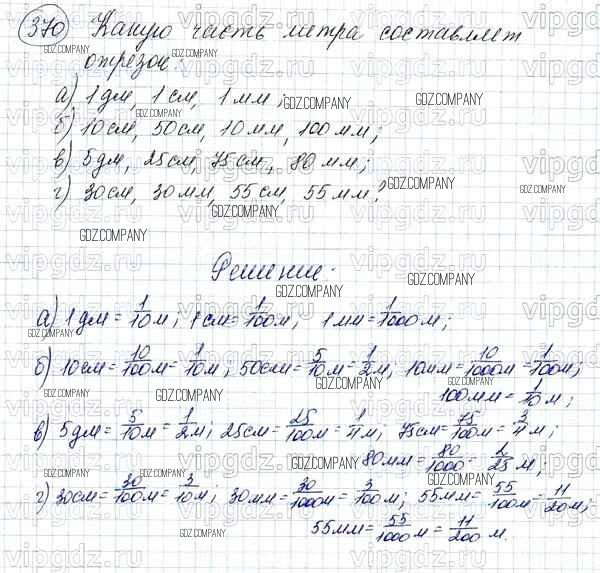 370 Какую часть метра составляет
отрезок:
а) 1 дм, 1 см, 1 мм;
б) 10 см, 50 см, 10 мм, 100 мм;
в) 5 дм, 25 см, 75 см, 80 мм;
г) 30 см, 30 мм, 55 см, 55 мм;
Решение:
а) 1 дм = 1/10 м; 1 см = 1/100 м, 1 мм = 1/1000 м;
б) 10 см = 10/100 м = 1/10 м; 50 см = 5/10 м = 1/2 м; 10 мм = 10/1000 м = 1/100 м;
100 мм = 1/10 м;
в) 5 дм = 5/10 м = 1/2 м; 25 см = 25/100 м = 1/4 м; 75 см = 75/100 м = 3/4 м;
80 мм = 80/1000 = 2/25 м;
г) 30 см = 30/100 м = 3/10 м; 30 мм = 30/1000 м = 3/100 м; 55 см = 55/100 м = 11/20 м;
55 мм = 55/1000 м = 11/200 м.